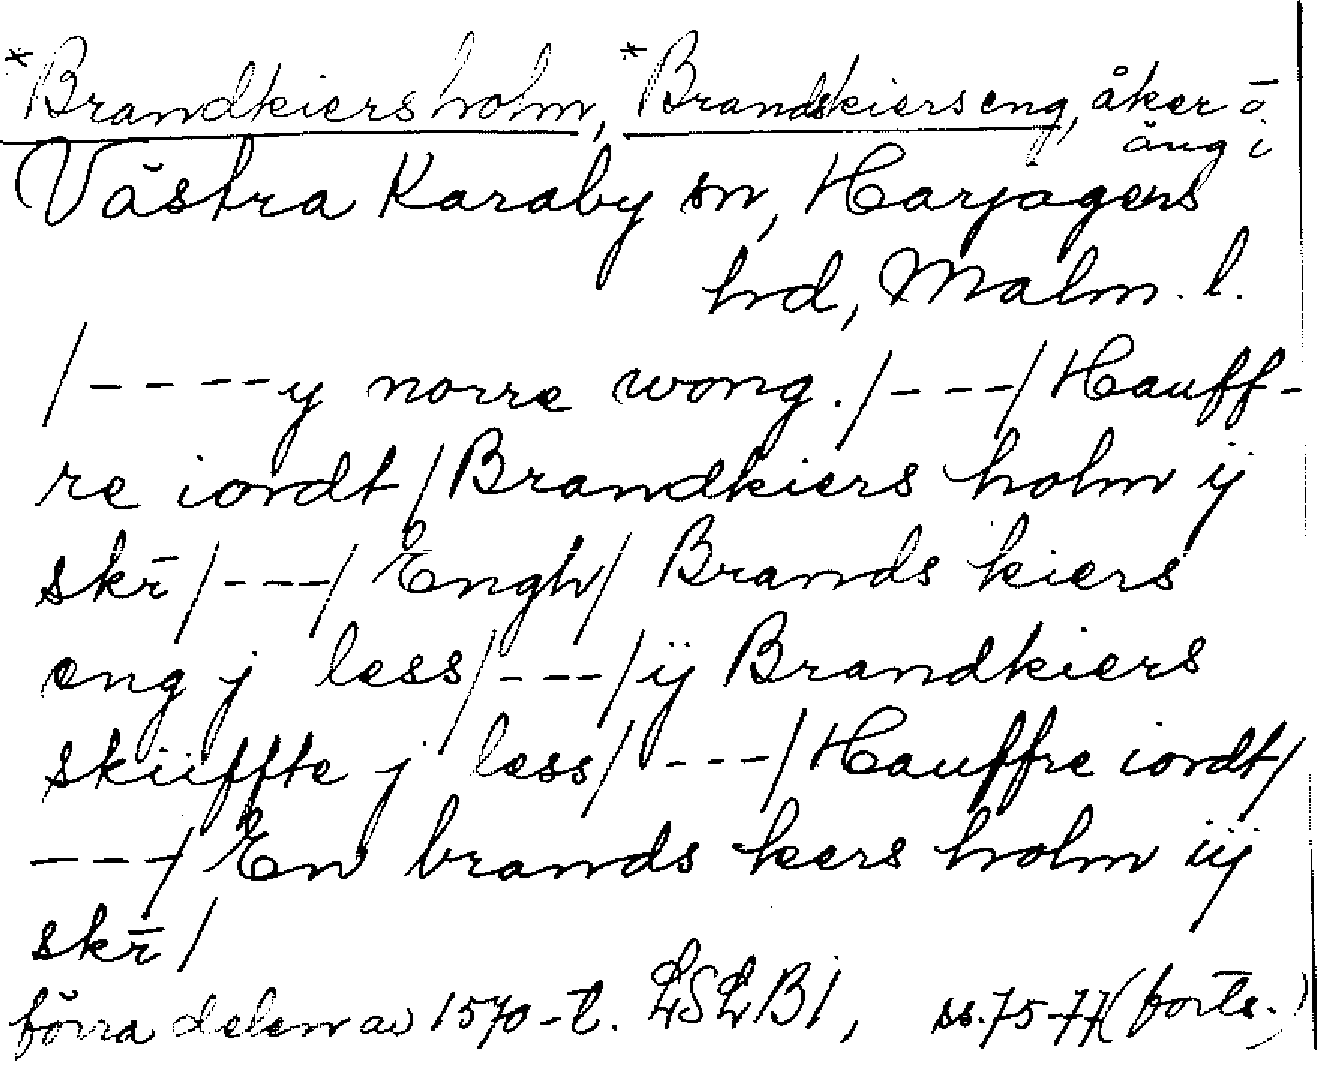 *Brandkiersholm, *Brandskierseng, åker ō
äng i
Västra Karaby sn, Harjagers
hd, Malm. l.
/----y norre wong./---/Hauff-
re iordt/Brandkiers holm ij
skr̄/---/Engh/Brands kiers
eng j less/---/ÿ Brandkiers
skiiffte j less/---/Hauffre iordt/
---/En brands kers holm iij
skr̄/
förra delen av 1570-t. LSLB1, ss.75-77(forts.)